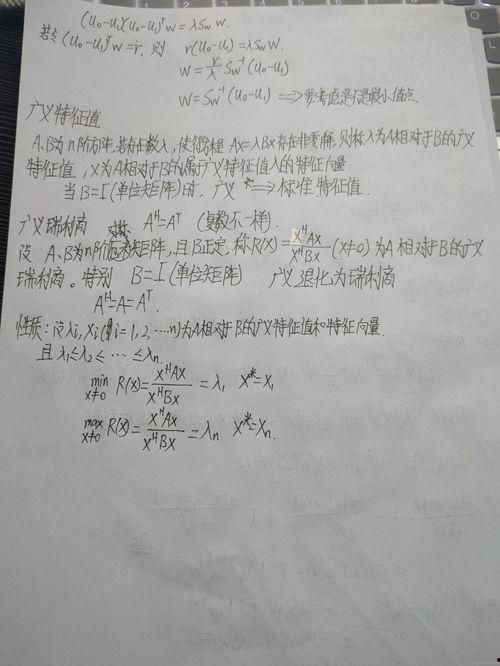 (u₀-u₁)(u₀-u₁)ᵀw = λSw w.
若令 (u₀-u₁)ᵀw = r, 则 r(u₀-u₁) = λSw w.
w = r/λ Sw⁻¹(u₀-u₁)
w = Sw⁻¹(u₀-u₁) ⟹ 要考虑是否是最小值点.
广义特征值
A、B为n阶方阵,若存在数λ,使得方程 Ax=λBx 存在非零解,则称λ为A相对于B的广义
特征值,x为A相对于B的属于广义特征值λ的特征向量
当B=I(单位矩阵)时,广义 ⟹ 标准特征值.
广义瑞利商 Aᴴ=Aᵀ (复数不一样).
设 A、B为n阶矩阵,且B正定,称R(x)= xᴴAx/xᴴBx (x≠0)为A相对于B的广义
瑞利商。特别 B=I(单位矩阵) 广义退化为瑞利商
Aᴴ=A=Aᵀ.
性质:设λi,xi(i=1,2,…n)为A相对于B的广义特征值和特征向量.
且 λ₁≤λ₂≤ … ≤λn.
min x≠0 R(x)= xᴴAx/xᴴBx = λ₁ x*=x₁
max x≠0 R(x)= xᴴAx/xᴴBx = λn x*=xn.